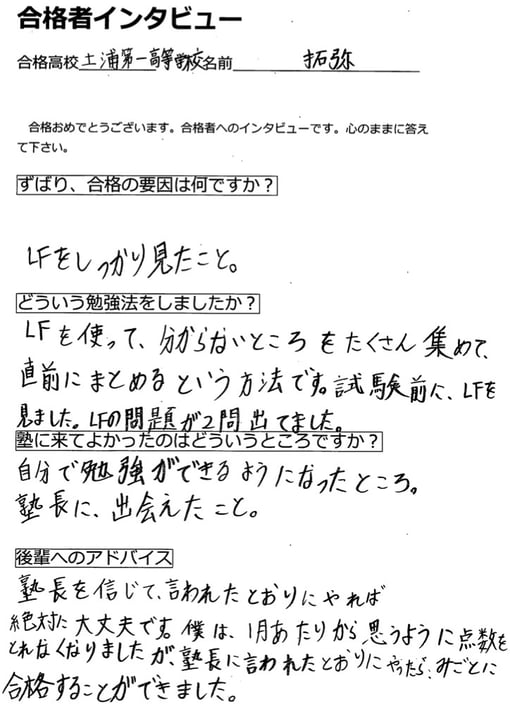 合格者インタビュー
合格高校土浦第一高等学校名前 拓弥
合格おめでとうございます。合格者へのインタビューです。心のままに答え
て下さい。
ずばり、合格の要因は何ですか？
LFをしっかり見たこと。
どういう勉強法をしましたか？
LFを使って、分からないところをたくさん集めて、
直前にまとめるという方法です。試験前に、LFを
見ました。LFの問題が2問出てました。
塾に来てよかったのはどういうところですか？
自分で勉強ができるようになったところ。
塾長に、出会えたこと。
後輩へのアドバイス
塾長を信じて、言われたとおりにやれば
絶対に大丈夫です。僕は、1月あたりから思うように点数を
とれなくなりましたが、塾長に言われたとおりにやったら、みごとに
合格することができました。